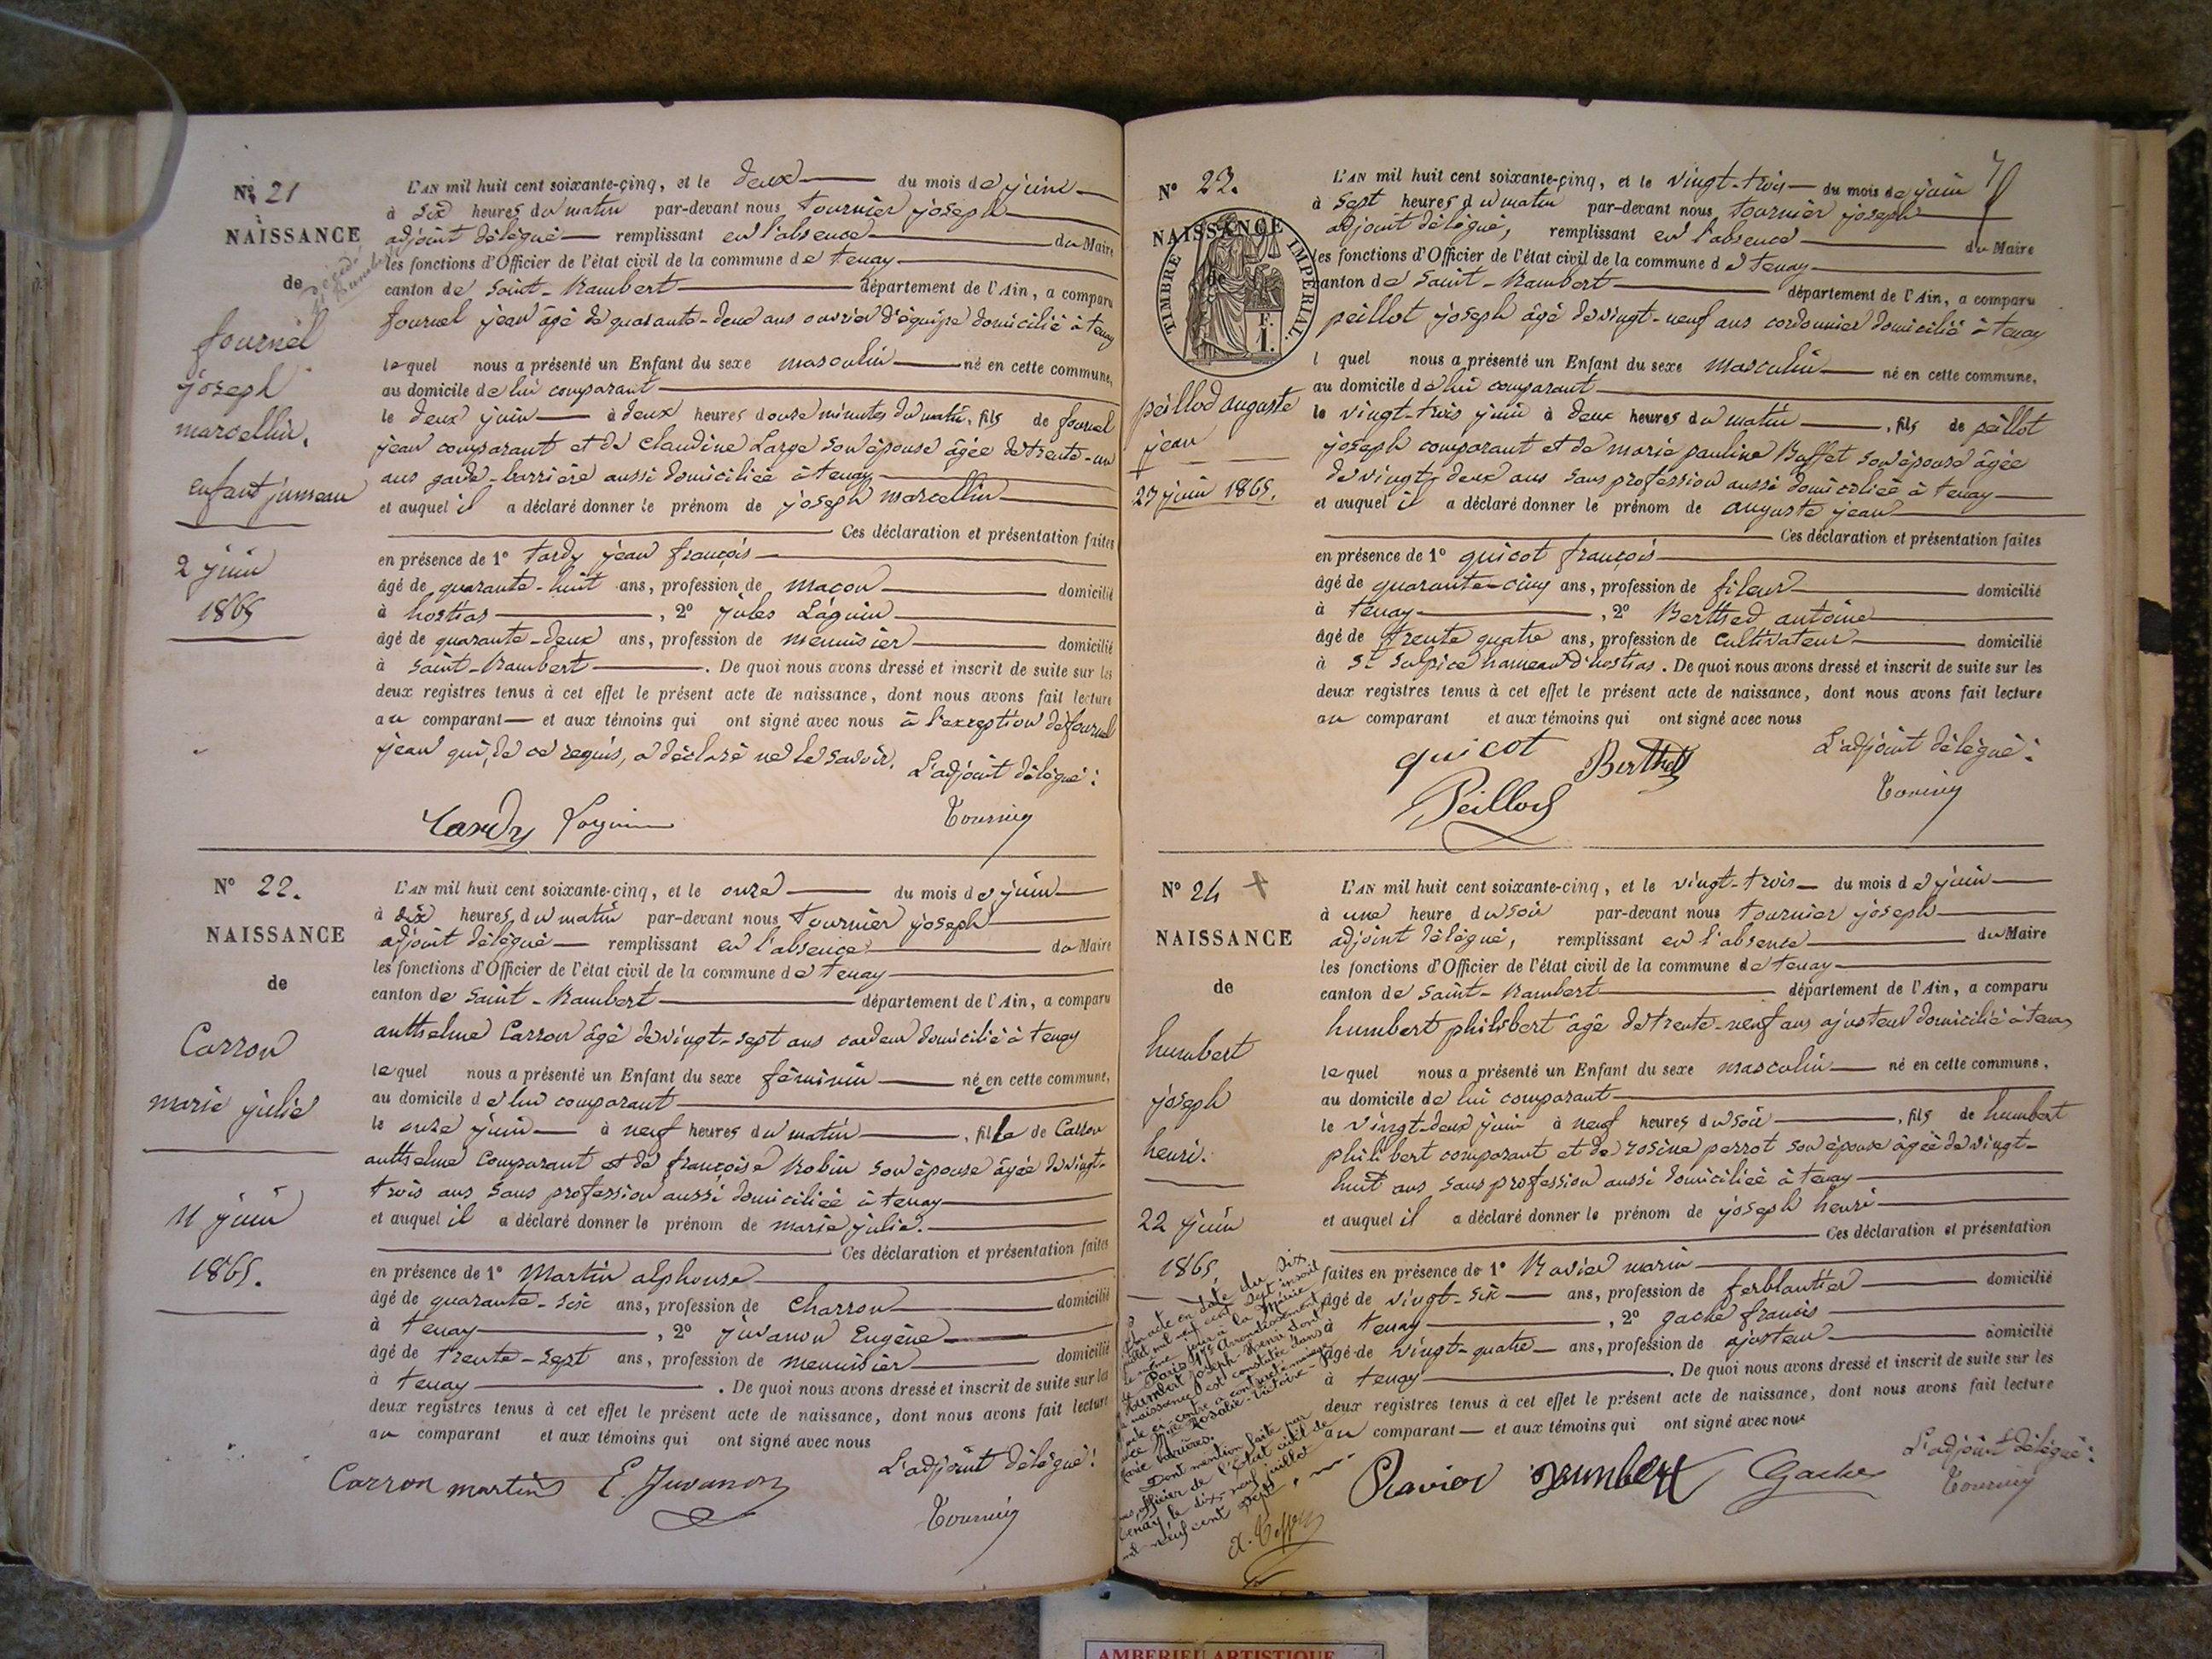 N° 21
NAISSANCE
de
fournel
joseph
marcellin.
enfant jumeau
2 juin
1865
L'AN mil huit cent soixante-cinq, et le deux du mois de juin
à six heures du matin par-devant nous tournier joseph
adjoint délégué remplissant en l'absence du Maire
les fonctions d'Officier de l'état civil de la commune de tenay
canton de Saint-Rambert département de l'Ain, a comparu
fournel jean âgé de quarante-deux ans ouvrier d'équipe domicilié à tenay
lequel nous a présenté un Enfant du sexe masculin né en cette commune,
au domicile de lui comparant
le deux juin à deux heures douze minutes du matin, fils de fournel
jean comparant et de Claudine Large son épouse âgée de trente-un
ans garde-barrière aussi domiciliée à tenay
et auquel il a déclaré donner le prénom de joseph marcellin
Ces déclaration et présentation faites
en présence de 1° tardy jean françois
âgé de quarante-huit ans, profession de maçon domicilié
à hostias, 2° jules Laguin
âgé de quarante-deux ans, profession de menuisier domicilié
à Saint-Rambert. De quoi nous avons dressé et inscrit de suite sur les
deux registres tenus à cet effet le présent acte de naissance, dont nous avons fait lecture
au comparant et aux témoins qui ont signé avec nous à l'exception de fournel
jean qui, de ce requis, a déclaré ne le savoir. L'adjoint délégué:
Tardy Laguin Tournier
N° 22.
NAISSANCE
de
Carron
marie julie
11 juin
1865.
L'AN mil huit cent soixante-cinq, et le onze du mois de juin
à dix heures du matin par-devant nous tournier joseph
adjoint délégué remplissant en l'absence du Maire
les fonctions d'Officier de l'état civil de la commune de tenay
canton de Saint-Rambert département de l'Ain, a comparu
anthelme Carron âgé de vingt-sept ans cardeur domicilié à tenay
lequel nous a présenté un Enfant du sexe féminin né en cette commune,
au domicile de lui comparant
le onze juin à neuf heures du matin, fille de Carron
anthelme comparant et de françoise Robin son épouse âgée de vingt-
trois ans sans profession aussi domiciliée à tenay
et auquel il a déclaré donner le prénom de marie julie.
Ces déclaration et présentation faites
en présence de 1° Martin alphonse
âgé de quarante-six ans, profession de charron domicilié
à tenay, 2° juvanon Eugène
âgé de trente-sept ans, profession de menuisier domicilié
à tenay. De quoi nous avons dressé et inscrit de suite sur les
deux registres tenus à cet effet le présent acte de naissance, dont nous avons fait lecture
au comparant et aux témoins qui ont signé avec nous
L'adjoint délégué:
Carron martin E. Juvanon Tournier
N° 23.
NAISSANCE
de
TIMBRE IMPERIAL
F.
1.
peillod auguste
jean
23 juin 1865.
L'AN mil huit cent soixante-cinq, et le vingt-trois du mois de juin
à sept heures du matin par-devant nous tournier joseph
adjoint délégué, remplissant en l'absence du Maire
les fonctions d'Officier de l'état civil de la commune de tenay
canton de Saint-Rambert département de l'Ain, a comparu
peillot joseph âgé de vingt-neuf ans cordonnier domicilié à tenay
l quel nous a présenté un Enfant du sexe masculin né en cette commune,
au domicile de lui comparant
le vingt-trois juin à deux heures du matin, fils de peillot
joseph comparant et de marie pauline Buffet son épouse âgée
de vingt-deux ans sans profession aussi domiciliée à tenay
et auquel il a déclaré donner le prénom de auguste jean
Ces déclaration et présentation faites
en présence de 1° guicot françois
âgé de quarante-cinq ans, profession de fileur domicilié
à tenay, 2° Berthed antoine
âgé de trente quatre ans, profession de cultivateur domicilié
à St Sulpice hameau d'hostias. De quoi nous avons dressé et inscrit de suite sur les
deux registres tenus à cet effet le présent acte de naissance, dont nous avons fait lecture
au comparant et aux témoins qui ont signé avec nous
guicot Berthet L'adjoint délégué:
Peillod Tournier
N° 24
NAISSANCE
de
humbert
joseph
henri.
22 juin
1865.
L'AN mil huit cent soixante-cinq, et le vingt-trois du mois de juin
à une heure du soir par-devant nous tournier joseph
adjoint délégué, remplissant en l'absence du Maire
les fonctions d'Officier de l'état civil de la commune de tenay
canton de Saint-Rambert département de l'Ain, a comparu
humbert philibert âgé de trente-neuf ans ajusteur domicilié à tenay
lequel nous a présenté un Enfant du sexe masculin né en cette commune,
au domicile de lui comparant
le vingt-deux juin à neuf heures du soir, fils de humbert
philibert comparant et de rosine perrot son épouse âgée de vingt-
huit ans sans profession aussi domiciliée à tenay
et auquel il a déclaré donner le prénom de joseph henri
Ces déclaration et présentation
faites en présence de 1° Ravier marin
âgé de vingt-six ans, profession de ferblantier domicilié
à tenay, 2° gache francis
âgé de vingt-quatre ans, profession de ajusteur domicilié
à tenay. De quoi nous avons dressé et inscrit de suite sur les
deux registres tenus à cet effet le présent acte de naissance, dont nous avons fait lecture
au comparant et aux témoins qui ont signé avec nous
L'adjoint délégué:
Ravier humbert Gache Tournier
acte en date du dix
juillet mil neuf cent sept inscrit
le même jour à la Mairie
de Paris arrondissement
Humbert Joseph-Henri dont
la naissance est constatée dans
l'acte ci-contre a contracté mariage
avec Rosalie-Victoire
Dont mention faite par
nous, officier de l'État civil de
Tenay, le dix-neuf juillet
mil neuf cent sept.
AMBERIEU ARTISTIQUE